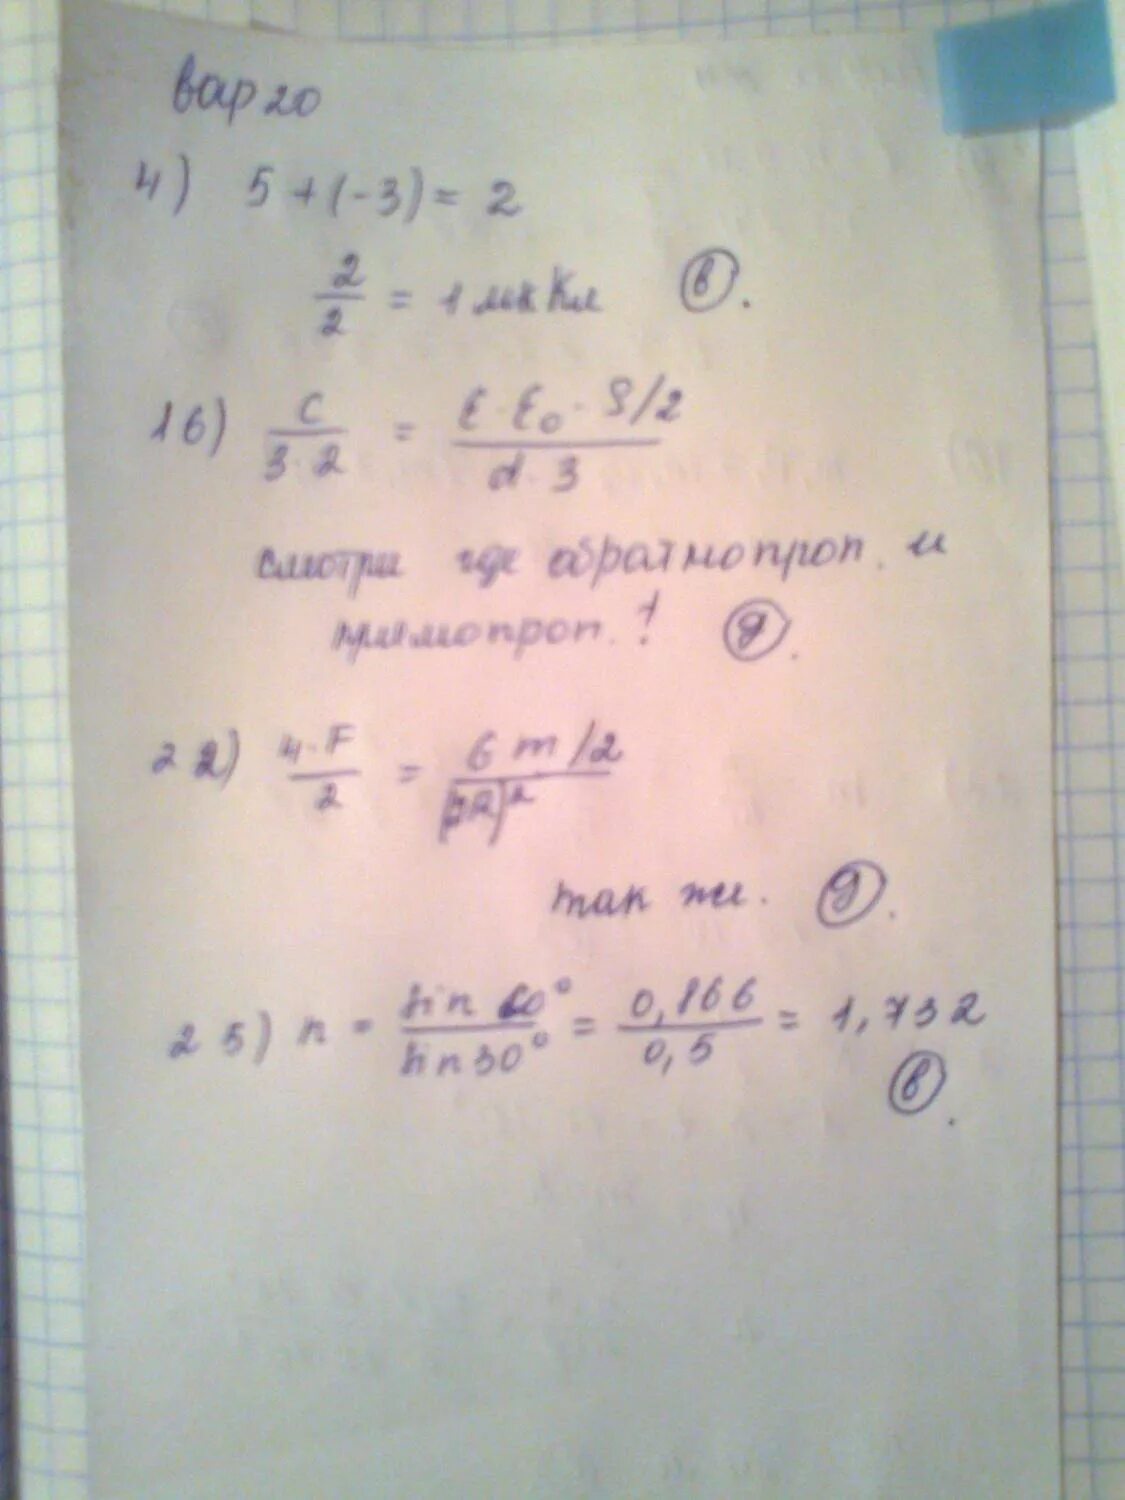 вар 20
4) 5 + (-3) = 2
2/2 = 1 мк Кл (в).
16) C/(3·2) = (ε·ε₀·S/2)/(d·3)
смотри где обратнопроп. и
прямопроп.! (д).
22) 4·F/2 = (G m/2)/()²
так же. (д).
25) n = sin 60°/sin 30° = 0,866/0,5 = 1,732
(в).